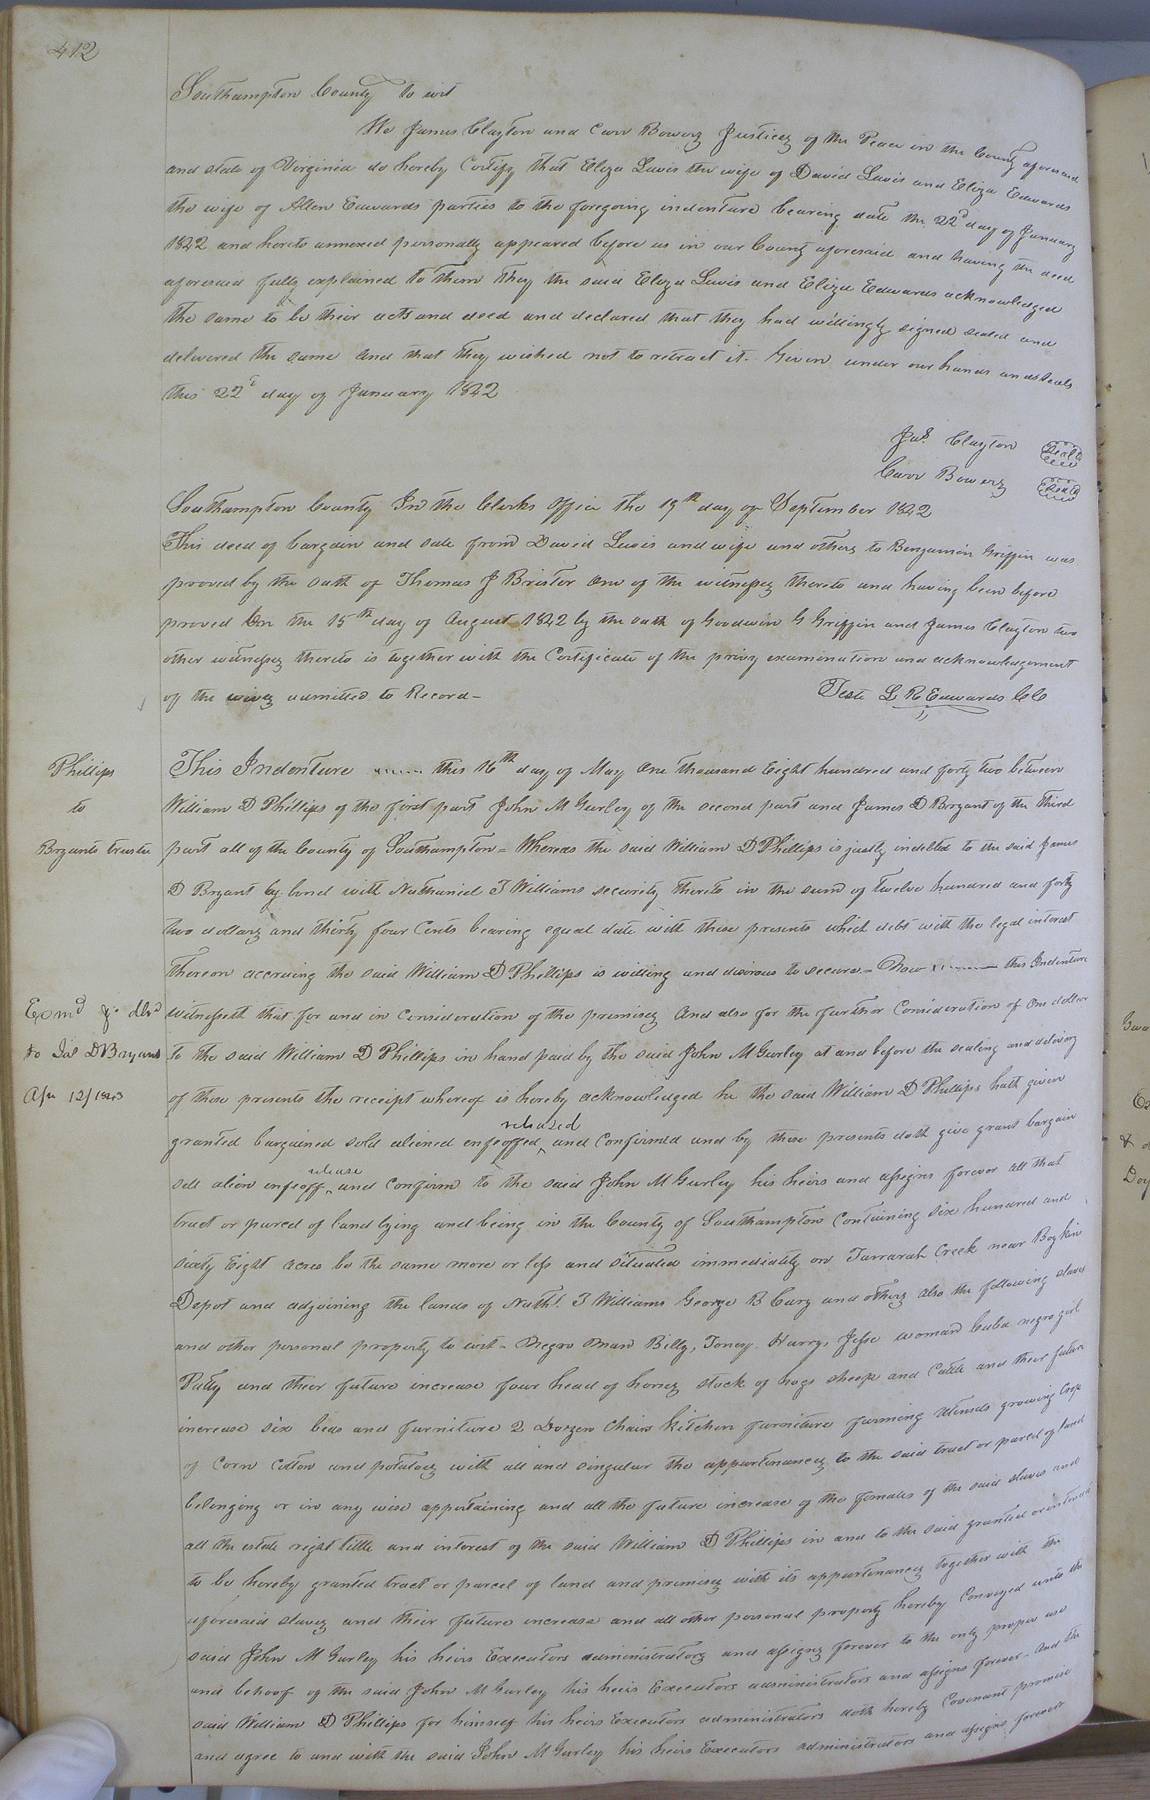 412
Southampton County to wit
We James Clayton and Carr Bowers Justices of the Peace in the County aforesaid
and state of Virginia do hereby Certify that Eliza Lewis the wife of David Lewis and Eliza Edwards
the wife of Allen Edwards parties to the foregoing indenture bearing date the 22d day of January
1822 and hereto annexed personally appeared before us in our County aforesaid and having the deed
aforesaid fully explained to them they the said Eliza Lewis and Eliza Edwards acknowledged
the same to be their acts and deed and declared that they had willingly signed sealed and
delivered the same and that they wished not to retract it. Given under our hands and seals
this 22d day of January 1822
Jas Clayton Seal
Carr Bowers Seal
Southampton County In the Clerks Office the 19th day of September 1822
This deed of bargain and sale from David Lewis and wife and others to Benjamin Griffin was
prooved by the oath of Thomas J Brister one of the witnesses thereto and having been before
proved On the 15th day of August 1822 by the oath of Goodwin G Griffin and James Clayton two
other witnesses thereto is together with the Certificate of the privy examination and acknowledgement
of the wives admitted to Record-
Teste L R Edwards CC
Phillips
to
Bryants trustee
This Indenture this 16th day of May One thousand Eight hundred and forty two between
William D Phillips of the first part John M Gurley of the second part and James D Bryant of the Third
part all of the County of Southampton = Whereas the said William D Phillips is justly indebted to the said James
D Bryant by bond with Nathaniel T Williams security thereto in the sum of twelve hundred and forty
two dollars and thirty four Cents bearing equal date with these presents which debt with the legal interest
thereon accruing the said William D Phillips is willing and desirous to secure - Now this Indenture
Exmd & dld
to Jas D Bryant
Apr 12/1843
witnesseth that for and in Consideration of the premises And also for the further Consideration of One dollar
to the said William D Phillips in hand paid by the said John M Gurley at and before the sealing and delivery
of these presents the receipt whereof is hereby acknowledged he the said William D Phillips hath given
released
granted bargained sold aliened enfeoffed ^ and Confirmed and by these presents doth give grant bargain
release
sell alien enfeoff ^ and Confirm to the said John M Gurley his heirs and assigns forever all that
tract or parcel of land lying and being in the County of Southampton Containing six hundred and
sixty Eight acres be the same more or less and situated immediately on Tarrarah Creek near Boykin
Depot and adjoining the lands of Nathl. T Williams George B Cary and others also the following slaves
and other personal property to wit - Negro Man Billy, Toney, Harry, Jesse woman Cuba negro girl
Patty and their future increase four head of horses stock of hogs sheep and Cattle and their future
increase six beds and furniture 2 Dozen Chairs Kitchen furniture farming Utensils growing Crop
of Corn Cotton and potatoes with all and singular the appurtenances to the said tract or parcel of land
belonging or in any wise appertaining and all the future increase of the females of the said slaves and
all the estate right title and interest of the said William D Phillips in and to the said granted or intended
to be hereby granted tract or parcel of land and premises with its appurtenances together with the
aforesaid slaves and their future increase and all other personal property hereby Conveyed unto the
said John M Gurley his heirs Executors administrators and assigns forever to the only proper use
and behoof of the said John M Gurley his heirs Executors administrators and assigns forever - And the
said William D Phillips for himself his heirs Executors administrators doth hereby Covenant promise
and agree to and with the said John M Gurley his heirs Executors administrators and assigns forever